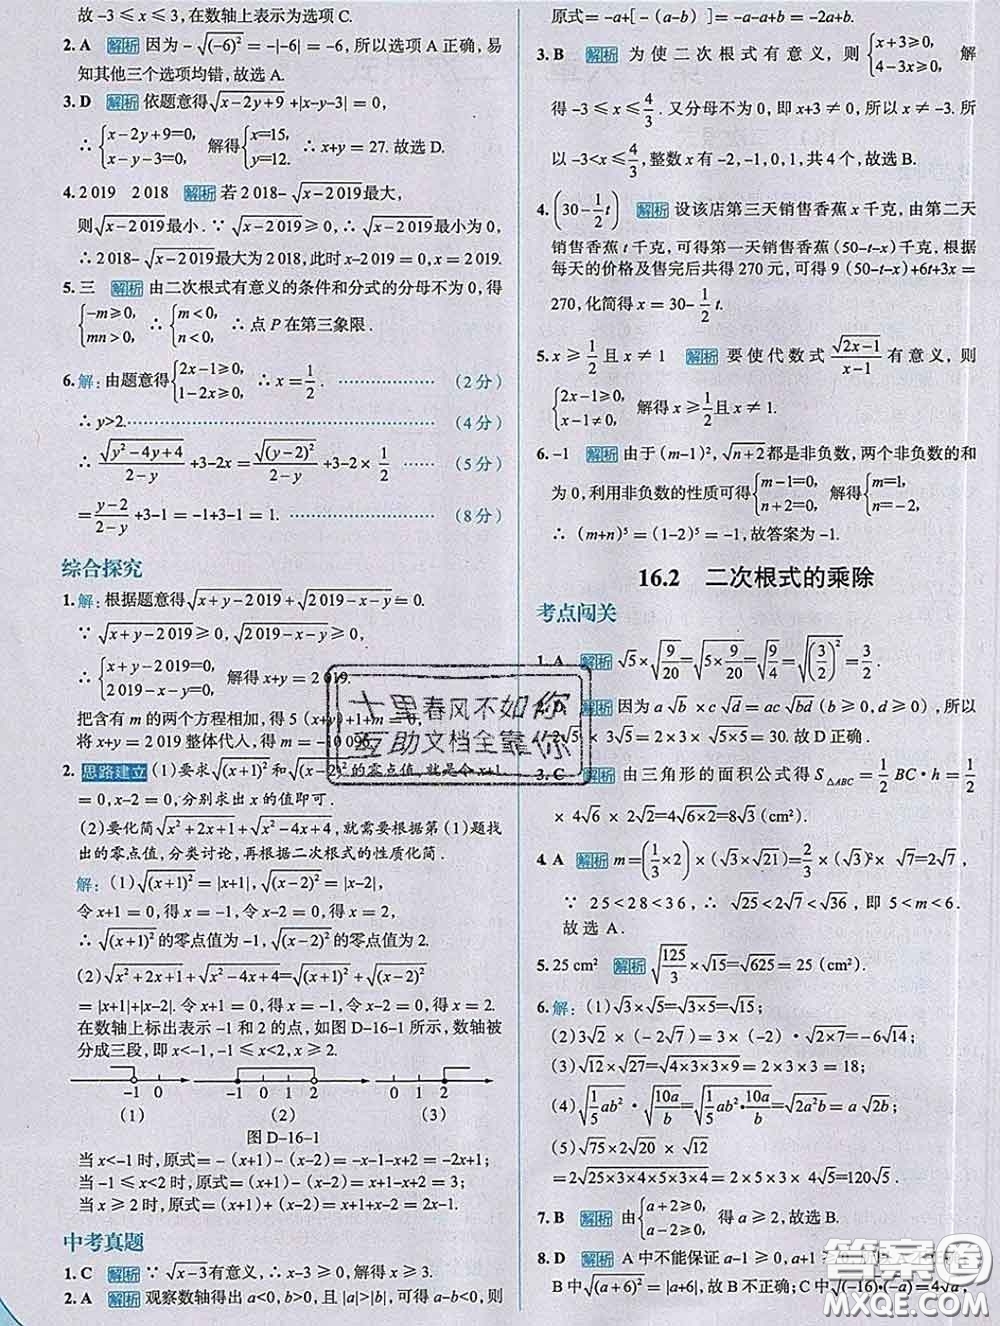 故 -3≤x≤3, 在数轴上表示为选项 C.
2. A 解析 因为 -√(-6)² = -|-6| = -6, 所以选项 A 正确, 易
知其他三个选项均错, 故选 A.
3. D 解析 依题意得 √(x-2y+9) + |x-y-3| = 0,
∴ {x-2y+9=0, x-y-3=0. 解得 {x=15, y=12. ∴ x+y = 27. 故选 D.
4. 2 019 2 018 解析 若 2 018-√(x-2 019) 最大,
则 √(x-2 019) 最小. ∵ √(x-2 019) ≥ 0, ∴ √(x-2 019) 最小为 0,
∴ 2 018-√(x-2 019) 最大为 2 018, 此时 x-2 019 = 0, x = 2 019.
5. 三 解析 由二次根式有意义的条件和分式的分母不为 0, 得
{-m≥0, mn>0, ∴ {m<0, n<0, ∴ 点 P 在第三象限.
6. 解: 由题意得 {2x-1≥0, 1-2x≥0, ∴ x = 1/2. (2 分)
∴ y>2. (4 分)
∴ √(y²-4y+4)/(2-y) +3-2x = √(y-2)²/(2-y) +3-2× 1/2 (5 分)
= (y-2)/(2-y) +3-1 = -1+3-1 = 1. (8 分)
综合探究
1. 解: 根据题意得 √(x+y-2 019) + √(2 019-x-y) = 0.
∵ √(x+y-2 019) ≥ 0, √(2 019-x-y) ≥ 0,
∴ {x+y-2 019=0, 2 019-x-y=0, 解得 x+y = 2 019.
把含有 m 的两个方程相加, 得 5 (x+y) +1+m = 0,
将 x+y = 2 019 整体代人, 得 m = -10 096.
2. 思路建立 (1)要求 √(x+1)² 和 √(x-2)² 的零点值, 就是令 x+1
= 0, x-2 = 0, 分别求出 x 的值即可.
(2)要化简 √(x²+2x+1) + √(x²-4x+4), 就需要根据第 (1)题找
出的零点值, 分类讨论, 再根据二次根式的性质化简.
解: (1) √(x+1)² = |x+1|, √(x-2)² = |x-2|,
令 x+1 = 0, 得 x = -1, 令 x-2 = 0, 得 x = 2,
∴ √(x+1)² 的零点值为 -1, √(x-2)² 的零点值为 2.
(2) √(x²+2x+1) + √(x²-4x+4) = √(x+1)² + √(x-2)²
= |x+1|+|x-2|. 令 x+1 = 0, 得 x = -1, 令 x-2 = 0, 得 x = 2.
在数轴上标出表示 -1 和 2 的点, 如图 D-16-1 所示, 数轴被
分成三段, 即 x<-1, -1≤x<2, x≥2.
-1 0 -1 0 1 2 0 1 2
(1) (2) (3)
图 D-16-1
当 x<-1 时, 原式 = - (x+1) - (x-2) = -x-1-x+2 = -2x+1;
当 -1≤x<2 时, 原式 = (x+1) - (x-2) = x+1-x+2 = 3;
当 x≥2 时, 原式 = (x+1) + (x-2) = x+1+x-2 = 2x-1.
中考真题
1. C 解析 ∵ √(x-3) 有意义, ∴ x-3≥0, 解得 x≥3.
2. A 解析 观察数轴得出 a<0, b>0, 且 |a|>|b|, 可得 a-b<0, 则
原式 = -a+[- (a-b) ] = -a-a+b = -2a+b.
3. B 解析 为使二次根式有意义, 则 {x+3≥0, 4-3x≥0, 解
得 -3≤x≤4/3. 又分母不为 0, 即 x+3≠0, 所以 x≠-3. 所
以 -3<x≤4/3, 整数 x 有 -2, -1, 0, 1, 共 4 个, 故选 B.
4. (30-1/2t) 解析 设该店第三天销售香蕉 x 千克, 由第二天
销售香蕉 t 千克, 可得第一天销售香蕉 (50-t-x)千克, 根据
每天的价格及售完后共得 270 元, 可得 9 (50-t-x)+6t+3x =
270, 化简得 x = 30-1/2t.
5. x≥1/2 且 x≠1 解析 要使代数式 √(2x-1)/(x-1) 有意义, 则
{2x-1≥0, x-1≠0, 解得 x≥1/2 且 x≠1.
6. -1 解析 由于 (m-1)², √(n+2) 都是非负数, 两个非负数的和
为 0, 利用非负数的性质可得 {m-1=0, n+2=0, 解得 {m=1, n=-2,
∴ (m+n)⁵ = (1-2)⁵ = -1, 故答案为 -1.
16.2 二次根式的乘除
考点闯关
1. A 解析 √5×√(9/20) = √(5×9/20) = √(9/4) = √(3/2)² = 3/2.
2. D 解析 因为 a√b × c√d = ac√bd (b≥0, d≥0),
2√5×3√5 = 2×3×√(5×5) = 30. 故 D 正确.
3. C 解析 由三角形的面积公式得 S△ABC = 1/2 BC·h = 1/2
× 4√6 × 2√2 = 4√(6×2) = 8√3 (cm²).
4. A 解析 m = (1/3×2) × (√3×√21) = 2/3 × (√3)² × √7 = 2√7,
∵ 25<28<36, ∴ √25 < 2√7 < √36, 即 5<m<6.
故选 A.
5. 25 cm² 解析 √(125/3) × √15 = √625 = 25 (cm²).
6. 解: (1) √3×√5 = √(3×5) = √15;
(2) 3√2 × (-2√7) = 3× (-2) · √(2×7) = -6√14;
(3) √12×√27 = √(4×3×3×9) = 2×3×3 = 18;
(4) √(1/5 ab²) · √(10a/b) = √(1/5 ab²·10a/b) = √(2a²b) = a√2b;
(5) √75×2√20 × √12
= 2√(25×3×4×5×3×4) = 2×5×3×4√5 = 120√5.
7. B 解析 由 {a+2≥0, a-2≥0, 得 a≥2, 故选 B.
8. D 解析 A 中不能保证 a-1≥0, a+1≥
B 中 √(a+6)² = |a+6|, 故 B 不正确; C 中 √((-16)·(-a)) = 4√a,
十里春风不如你
互助文档全靠你
答案圈
MXQE.COM